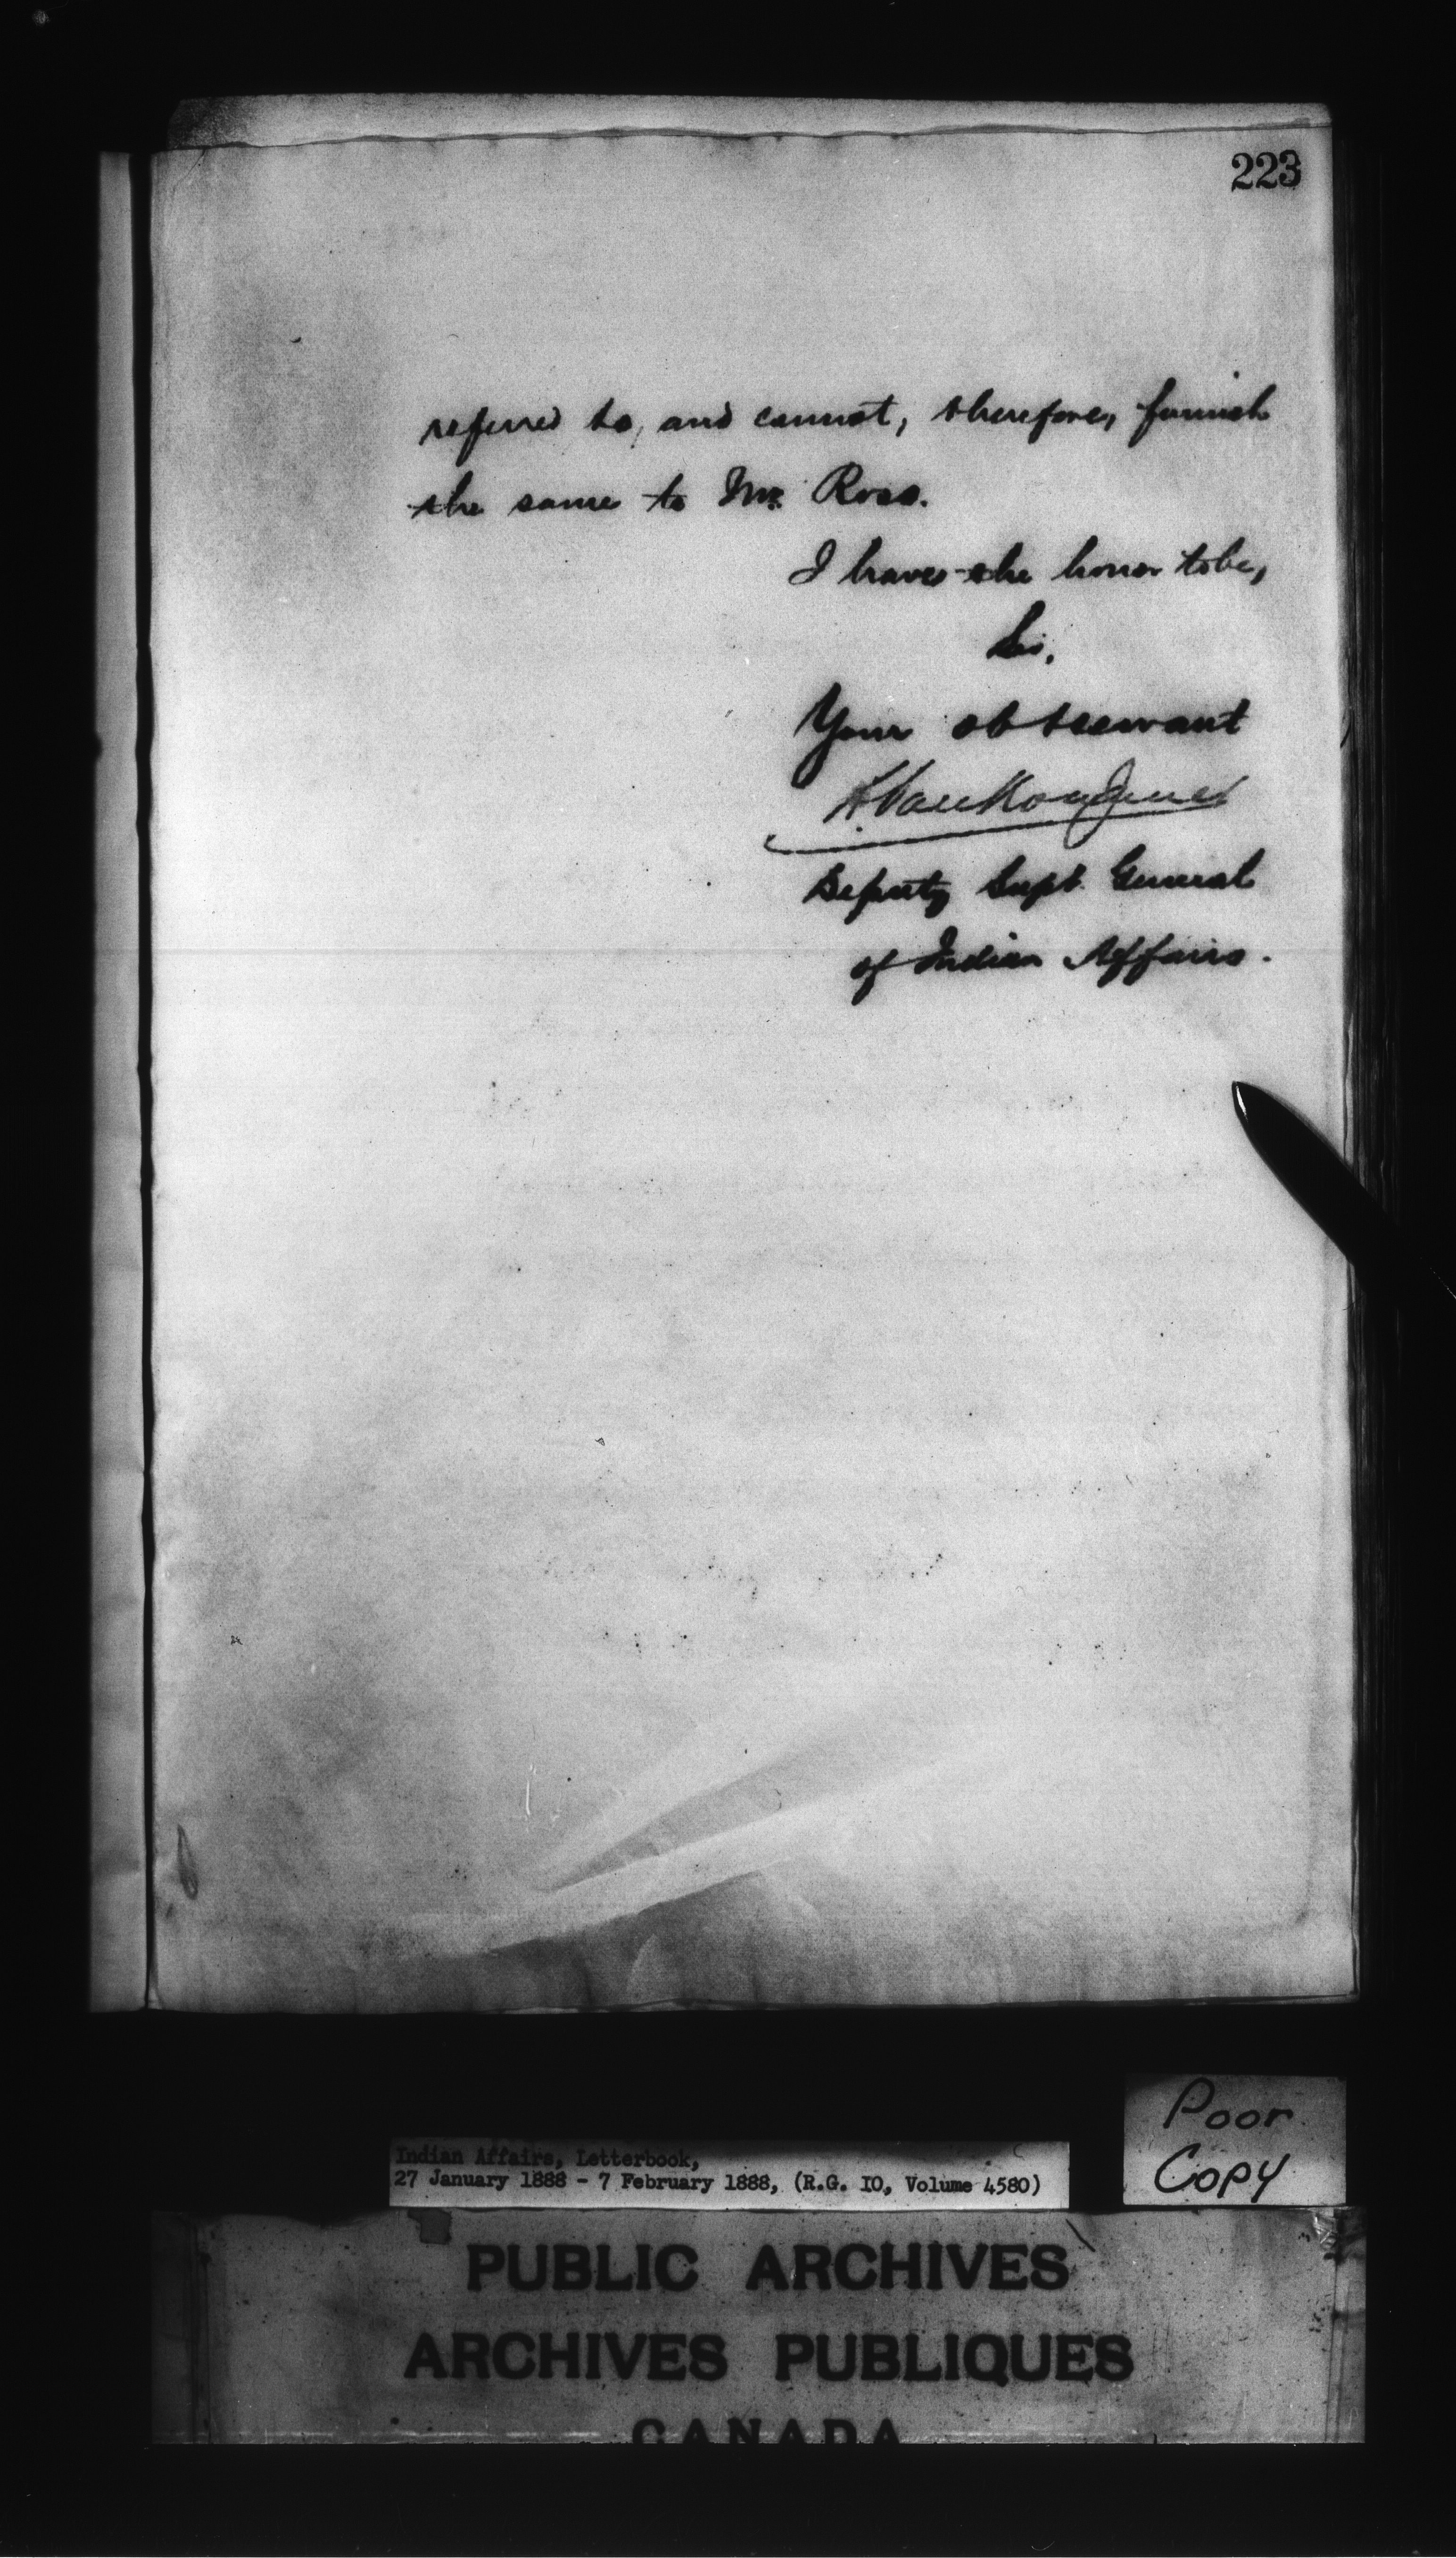 223
referred to, and cannot, therefore, furnish
the same to Mr. Ross.
I have the honor to be,
Sir,
Your obt servant
L. VanKoughnet
Deputy Supt. General
of Indian Affairs.
Poor
Copy
Indian Affairs, Letterbook,
27 January 1888 - 7 February 1888, (R.G. IO, Volume 4580)
PUBLIC ARCHIVES
ARCHIVES PUBLIQUES
CANADA